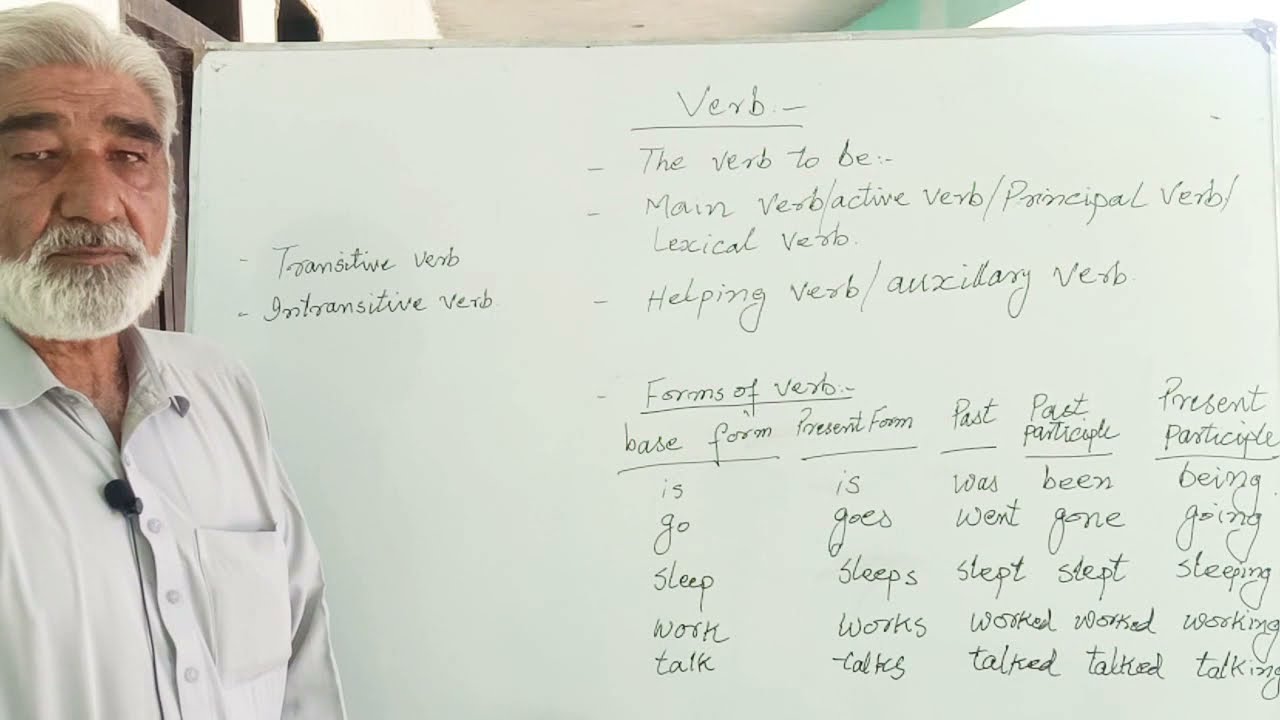 Verb:-
- The verb to be:-
- Main verb/active verb/Principal verb/
Lexical verb.
- Transitive verb
- Intransitive verb
- Helping verb/auxillary verb.
- Forms of verb:-
base form Present Form Past Past participle Present participle
is is was been being
go goes went gone going
sleep sleeps slept slept sleeping
work works worked worked working
talk talks talked talked talking